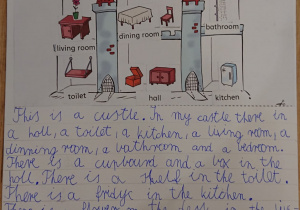 living room
dining room
bathroom
toilet
hall
kitchen
This is a custle. In my castle there in
a holl, a toilet, a kitchen, a living room, a
dinning room, a bathroom and a bedroom.
There is a cunbourd and a box in the
holl. There is a shield in the toilet.
There is a fridys in the kitchen.